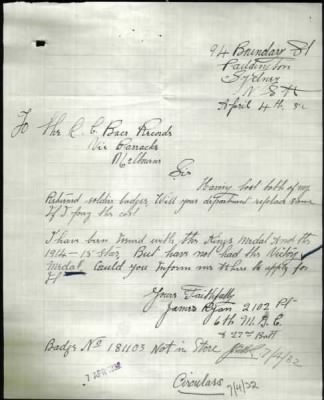 94 Boundary St
Paddington
Sydney
N S W
April 4th 32
To The O. C. Base Records
Vic Barracks
Melbourne
Sir
Having lost both of my
Returned soldier badges, Will your department replace same
If I pay the cost
I have been Issued with, the Kings Medal And the
1914-15 Star, But have not had the Victory
Medal, Could you Inform me Where to apply for
It
Yours Faithfully
James Ryan 2102 Pt
6th M. G. C.
& 27th Batt
Badge No 181103 Not in Store 7/4/32
7 APR 1932
Circulars 7/4/32